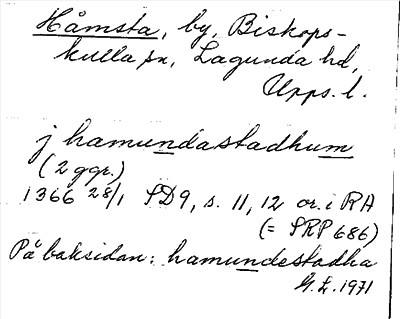 Håmsta, by, Biskops-
kulla sn, Lagunda hd,
Upps. l.
j hamundastadhum
(2 ggr.)
1366 28/1 SD9, s. 11, 12 or. i RA
(= SRP 686)
På baksidan: hamundestadha
G.L. 1971